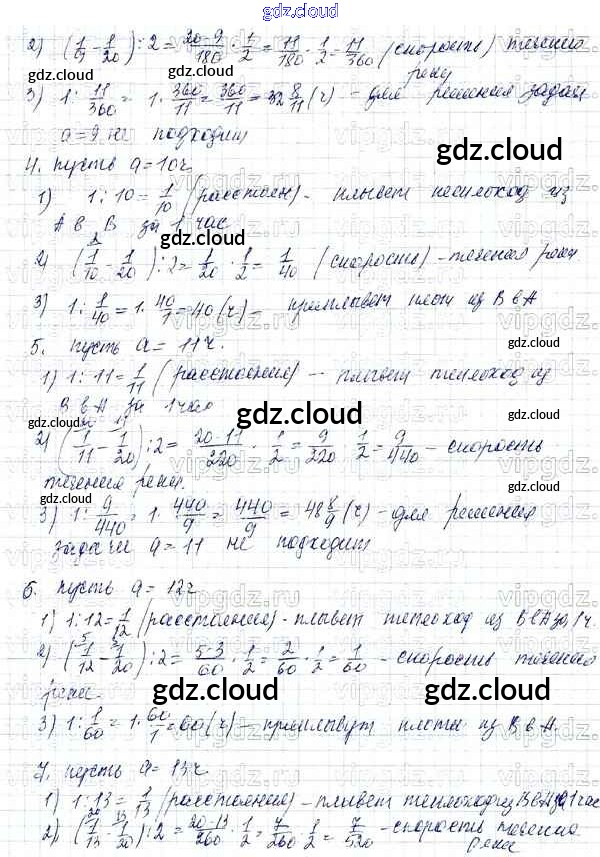 gdz.cloud
2) (1/9 - 1/20) : 2 = 20-9/180 · 1/2 = 11/180 · 1/2 = 11/360 (скорость) течения
реки
gdz.cloud
3) 1 : 11/360 = 1 · 360/11 = 360/11 = 32 8/11 (ч) - для решения задачи
a = 9 не подходит
gdz.cloud
4. пусть a = 10ч
1) 1 : 10 = 1/10 (расстоян) - плывет теплоход из
А в В за 1 час
gdz.cloud
2) (1/10 - 1/20) : 2 = 1/20 · 1/2 = 1/40 (скорость) - течения реки
3) 1 : 1/40 = 1 · 40/1 = 40 (ч) - приплывет плот из В в А
5. пусть a = 11ч.
gdz.cloud
1) 1 : 11 = 1/11 (расстояния) - плывет теплоход из
В в А за 1 час
gdz.cloud
2) (1/11 - 1/20) : 2 = 20-11/220 · 1/2 = 9/220 · 1/2 = 9/440 - скорость
течения реки.
gdz.cloud
3) 1 : 9/440 = 1 · 440/9 = 440/9 = 48 8/9 (ч) - для решения
задачи a = 11 не подходит
6. пусть a = 12ч
gdz.cloud
1) 1 : 12 = 1/12 (расстояния) - плывет теплоход из В в А за 1ч.
2) (1/12 - 1/20) : 2 = 5-3/60 · 1/2 = 2/60 · 1/2 = 1/60 - скорость течения
реки.
gdz.cloud gdz.cloud
3) 1 : 1/60 = 1 · 60/1 = 60 (ч) - приплывут плоты из В в А.
7. пусть a = 13ч
gdz.cloud
1) 1 : 13 = 1/13 (расстояния) - плывет теплоход из В в А за 1 час
2) (1/13 - 1/20) : 2 = 20-13/260 · 1/2 = 7/260 · 1/2 = 7/520 - скорость течения
реки
gdz.cloud